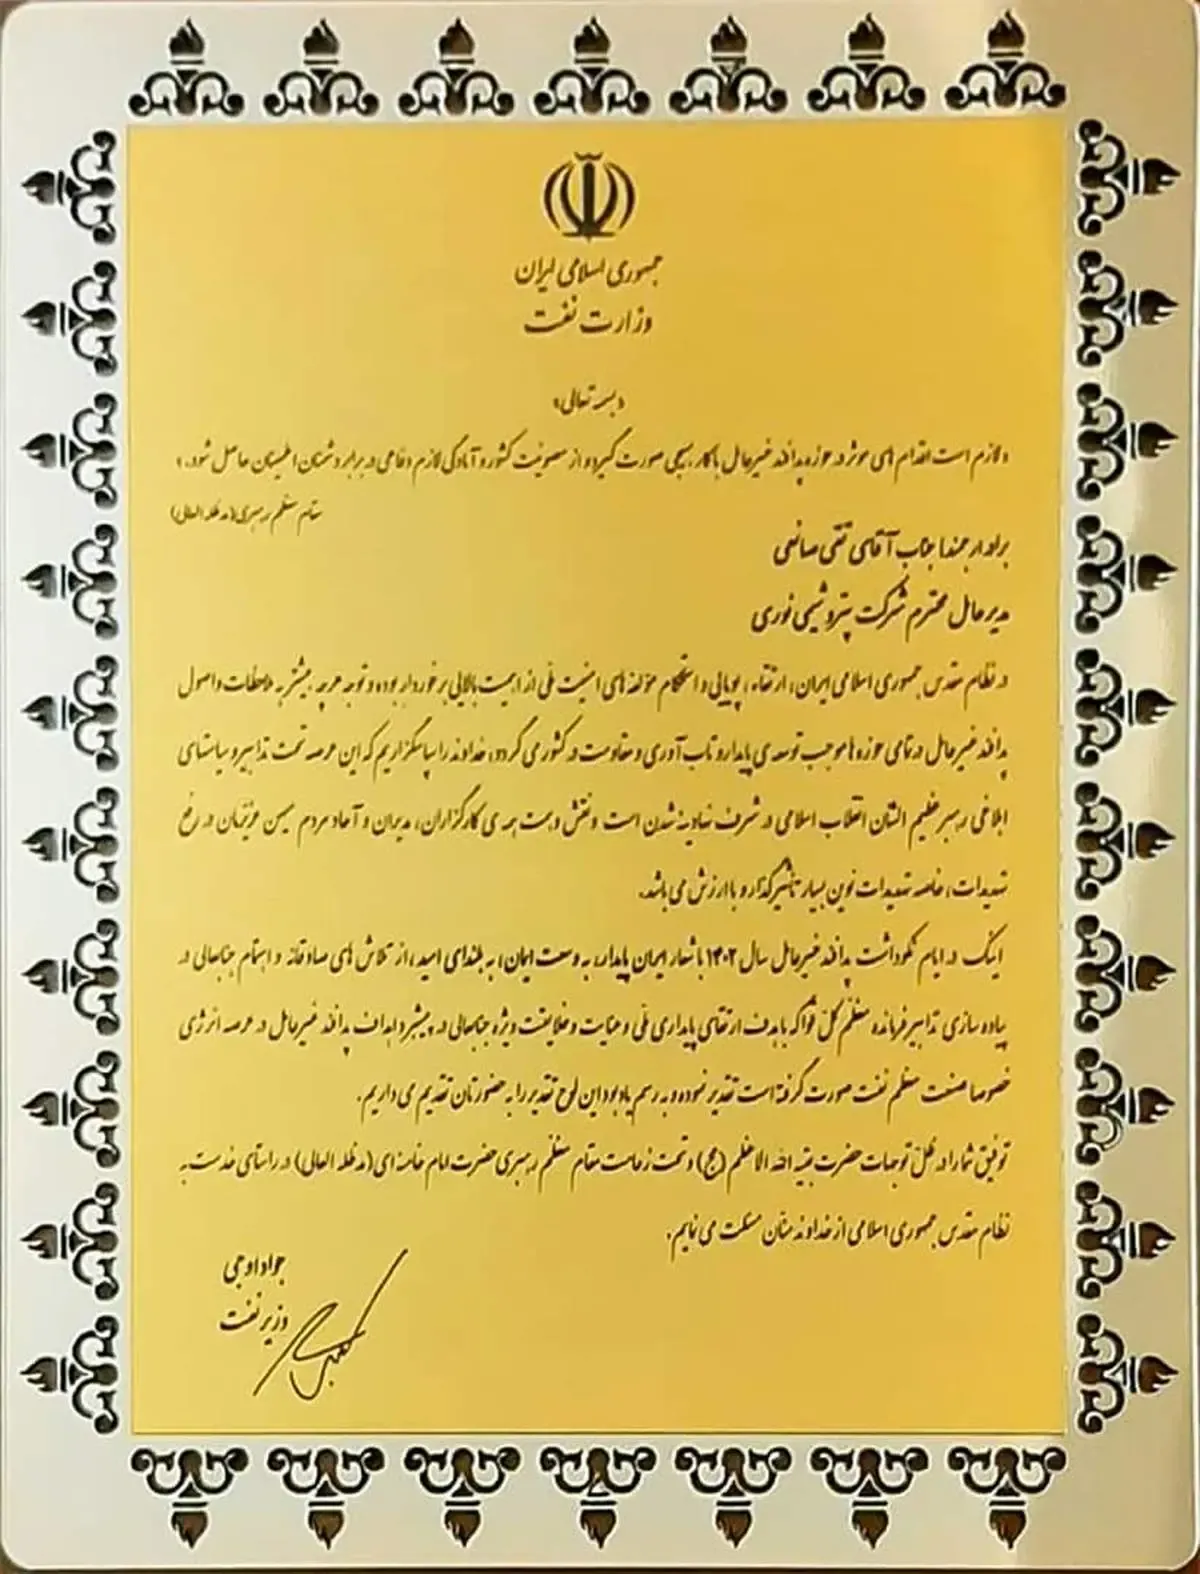 جمهوری اسلامی ایران
وزارت نفت
«بسمه تعالی»
«لازم است اقدام های موثر در حوزه پدافند غیرعامل با کار بسیجی صورت گیرد و از مصونیت کشور و آمادگی لازم دفاعی در برابر دشمنان اطمینان حاصل شود.»
مقام معظم رهبری (مدظله العالی)
برادر ارجمند جناب آقای تقی صانعی
مدیرعامل محترم شرکت پتروشیمی نوری
در نظام مقدس جمهوری اسلامی ایران، ارتقاء، پویایی و استحکام مؤلفه های امنیت ملی از اهمیت بالایی برخوردار بوده و توجه هرچه بیشتر به ملاحظات و اصول
پدافند غیرعامل در تمامی حوزه ها موجب توسعه ی پایدار و تاب آوری و مقاومت در کشور می گردد، خداوند را سپاسگزاریم که این عرصه تحت تدابیر و سیاستهای
ابلاغی رهبر عظیم الشان انقلاب اسلامی در شرف نهادینه شدن است و نقش و همت همه ی کارگزاران، مدیران و آحاد مردم میهن عزیزمان در رفع
تهدیدات، خاصه تهدیدات نوین بسیار تأثیرگذار و با ارزش می باشد.
اینک در ایام نکوداشت پدافند غیرعامل سال ۱۴۰۲ با شعار ایران پایدار، به وسعت ایمان، به بلندای امید، از تلاش های صادقانه و اهتمام جنابعالی در
پیاده سازی تدابیر فرمانده معظم کل قوا که با هدف ارتقای پایداری ملی و عنایت و خلاقیت ویژه جنابعالی در پیشبرد اهداف پدافند غیرعامل در عرصه انرژی
خصوصا صنعت معظم نفت صورت گرفته است تقدیر نموده و به رسم یادبود این لوح تقدیر را به حضورتان تقدیم می داریم.
توفیق شما را در ظل توجهات حضرت بقیه الله الاعظم (عج) و تحت زعامت مقام معظم رهبری حضرت امام خامنه ای (مدظله العالی) در راستای خدمت به
نظام مقدس جمهوری اسلامی از خداوند منان مسئلت می نمایم.
جواد اوجی
وزیر نفت